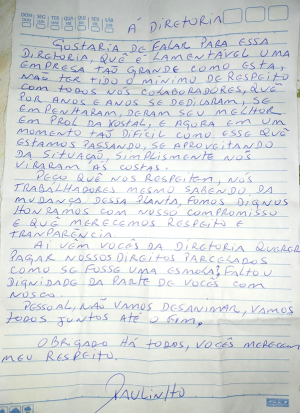 À DIRETORIA
GOSTARIA DE FALAR PARA ESSA
DIRETORIA, QUE É LAMENTÁVEL UMA
EMPRESA TÃO GRANDE COMO ESTA,
NÃO TER TIDO O MÍNIMO DE RESPEITO
COM TODOS NÓS COLABORADORES, QUE
POR ANOS E ANOS SE DEDICARAM, SE
EMPENHARAM, DERAM SEU MELHOR
EM PROL DA KOSTAL, E AGORA EM UM
MOMENTO TÃO DIFÍCIL COMO ESSE QUE
ESTAMOS PASSANDO, SE APROVEITANDO
DA SITUAÇÃO, SIMPLISMENTE NOS
VIRARAM AS COSTAS.
PEÇO QUE NOS RESPEITEM, NÓS
TRABALHADORES MESMO SABENDO DA
MUDANÇA DESSA PLANTA, FOMOS DIGNOS
HONRAMOS COM NOSSO COMPROMISSO
E QUE MERECEMOS RESPEITO E
TRANPARÊNCIA.
AÍ VEM VOCÊS DA DIRETORIA QUERER
PAGAR NOSSOS DIREITOS PARCELADOS
COMO SE FOSSE UMA ESMOLA, FALTOU
DIGNIDADE DA PARTE DE VOCÊS COM
NOSCO.
PESSOAL, NÃO VAMOS DESANIMAR, VAMOS
TODOS JUNTOS ATÉ O FIM.
OBRIGADO HÁ TODOS, VOCÊS MERECEM
MEU RESPEITO.
PAULINHO